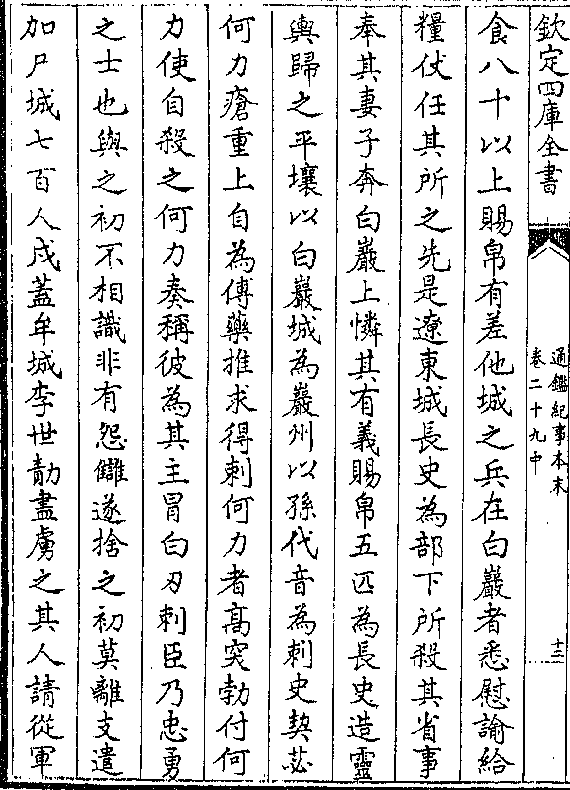 欽定四庫全書
通鑑紀事本末
卷二十九中
十三
食八十以上賜帛有差他城之兵在白巖者悉慰諭給
糧仗任其所之先是遼東城長史為部下所殺其省事
奉其妻子奔白巖上憐其有義賜帛五匹為長史造靈
輿歸之平壤以白巖城為巖州以孫代音為刺史契苾
何力瘡重上自為傅藥推求得刺何力者高突勃付何
力使自殺之何力奏稱彼為其主冒白刃刺臣乃忠勇
之士也與之初不相識非有怨讎遂捨之初莫離支遣
加尸城七百人戍蓋牟城李世勣盡虜之其人請從軍